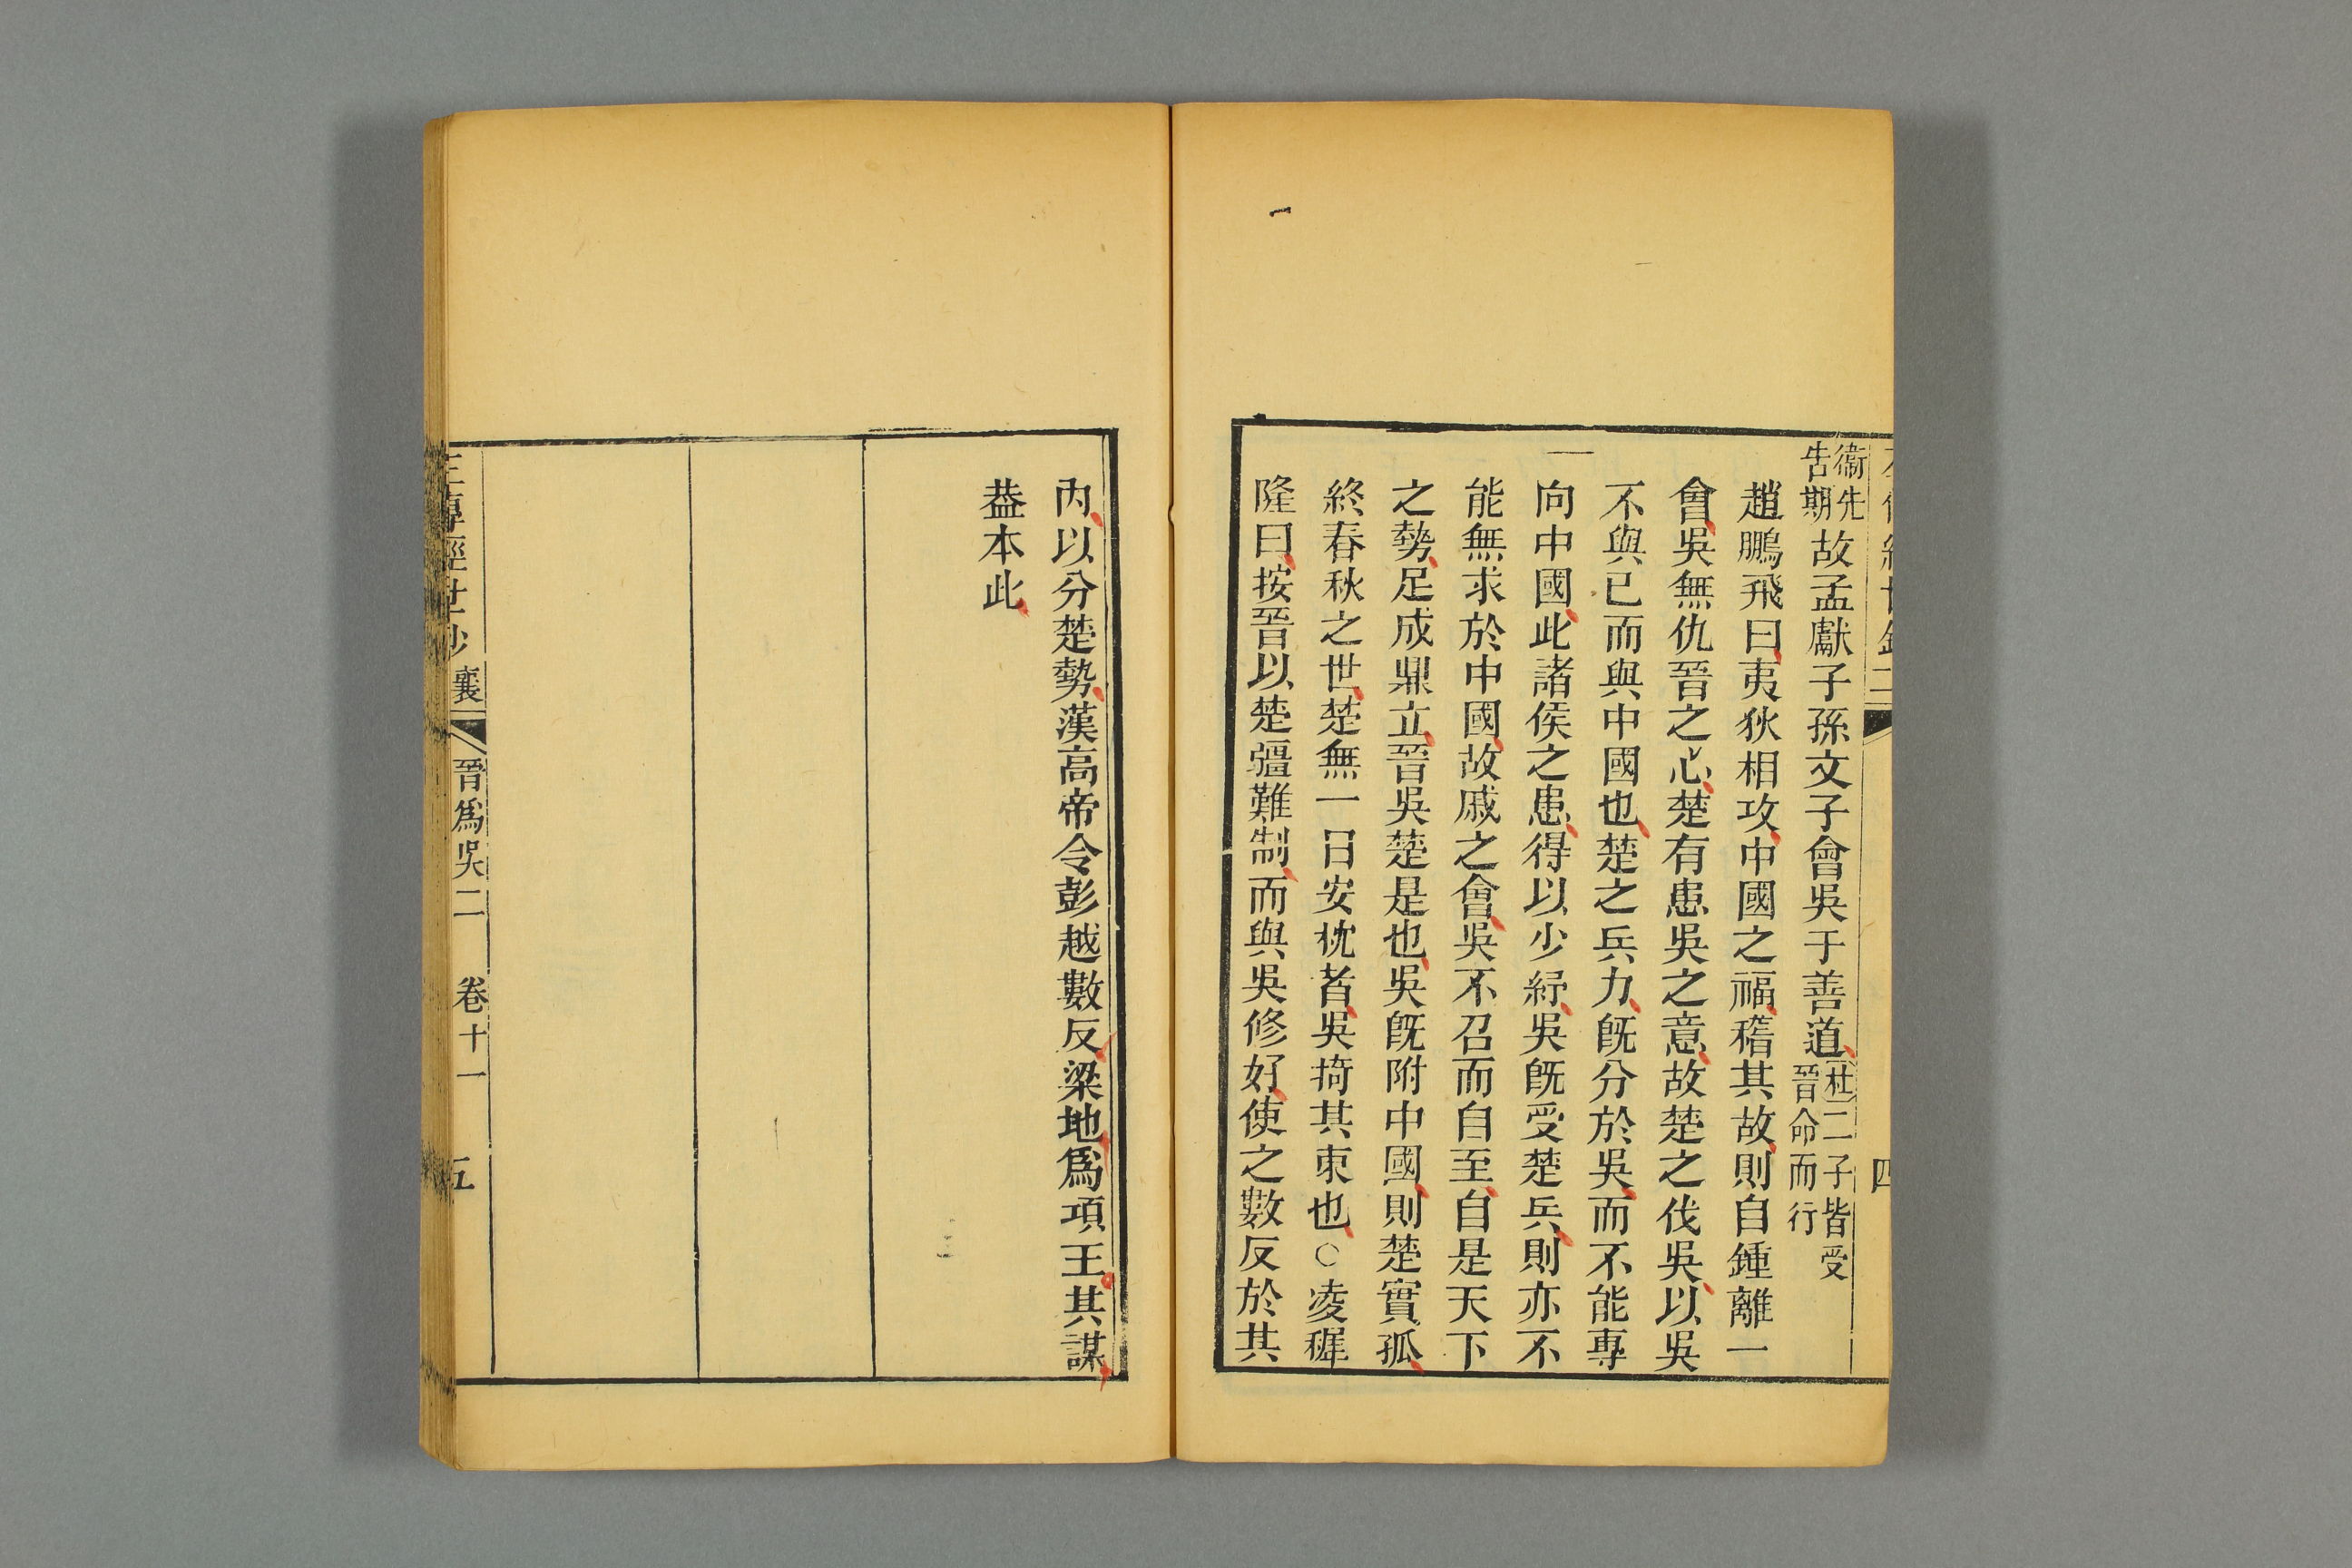 衞先
告期
故孟獻子孫文子會吳于善道
杜二子皆受
晉命而行
趙鵬飛曰夷狄相攻中國之福稽其故則自鍾離一
會吳無仇晉之心楚有患吳之意故楚之伐吳以吳
不與已而與中國也楚之兵力旣分於吳而不能專
向中國此諸侯之患得以少紓吳旣受楚兵則亦不
能無求於中國故戚之會吳不召而自至自是天下
之勢足成鼎立晉吳楚是也吳旣附中國則楚實孤
終春秋之世楚無一日安枕者吳掎其東也○凌稺
隆曰按晉以楚疆難制而與吳修好使之數反於其
四
內以分楚勢漢高帝令彭越數反梁地爲項王其謀
葢本此
襄
晉爲吳二
卷十一
五